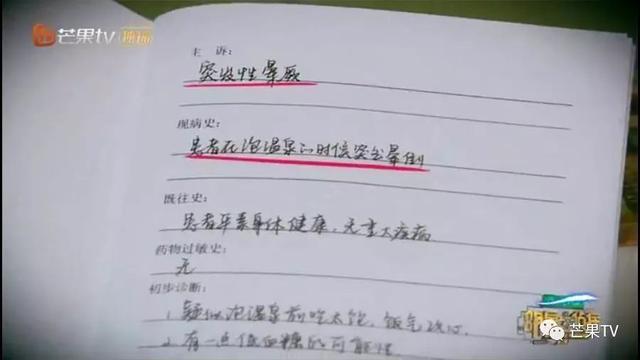 芒果TV 独播
主 诉：
突发性晕厥
现病史：
患者在泡温泉的时候突然晕倒
既往史：
患者平素身体健康，无重大疾病
药物过敏史：
无
初步诊断：
1. 疑似泡温泉前吃太饱，饭气攻心。
2. 有一点低血糖的可能性
明星大侦探
芒果TV